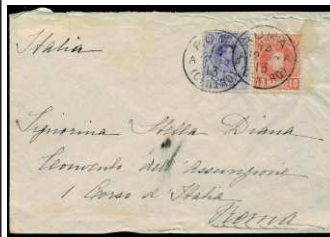 Italia
ROMA
A
(CENTRO)
10
Signorina Stella Diana
Convento dell'Assunzione
1 Corso d'Italia
Roma